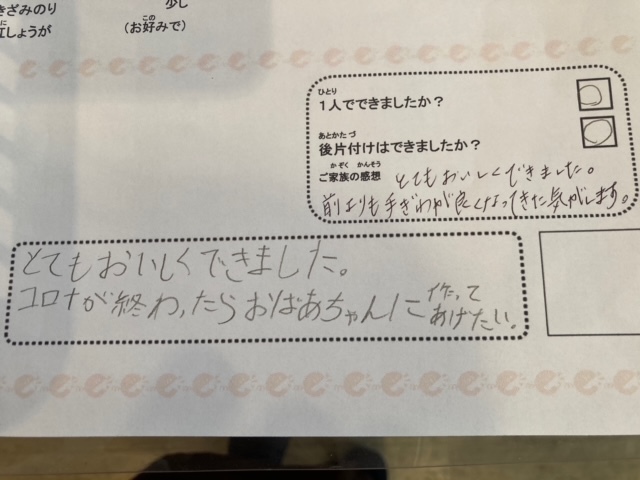 きざみのり
少し
紅しょうが
に
(お好みで)
この
ひとり
1人でできましたか？
あとかたづ
後片付けはできましたか？
かぞく かんそう
ご家族の感想 とてもおいしくできました。
前よりも手ぎわが良くなってきた気がします。
とてもおいしくできました。
コロナが終わったらおばあちゃんに作って
あげたい。